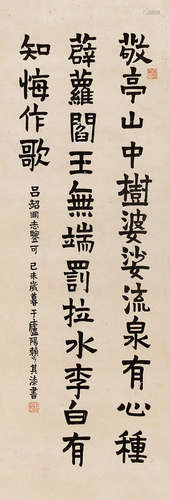 敬亭山中樹婆娑流泉有心種
薜蘿閻王無端罰拉水李白有
知悔作歌
己未歲暮于廬陽賴少其漆書